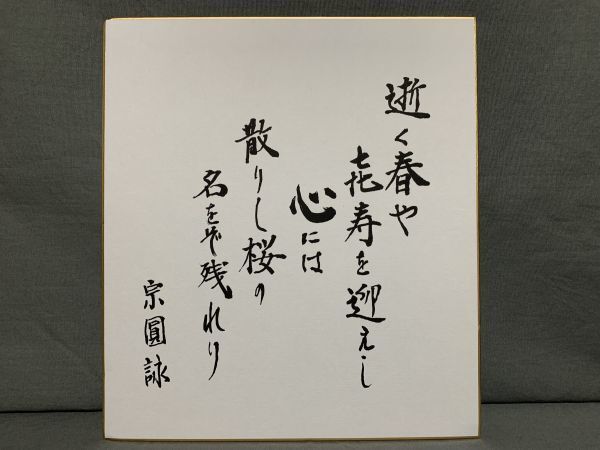 逝く春や
㐂寿を迎えし
心には
散りし桜の
名をぞ残れり
宗圓詠